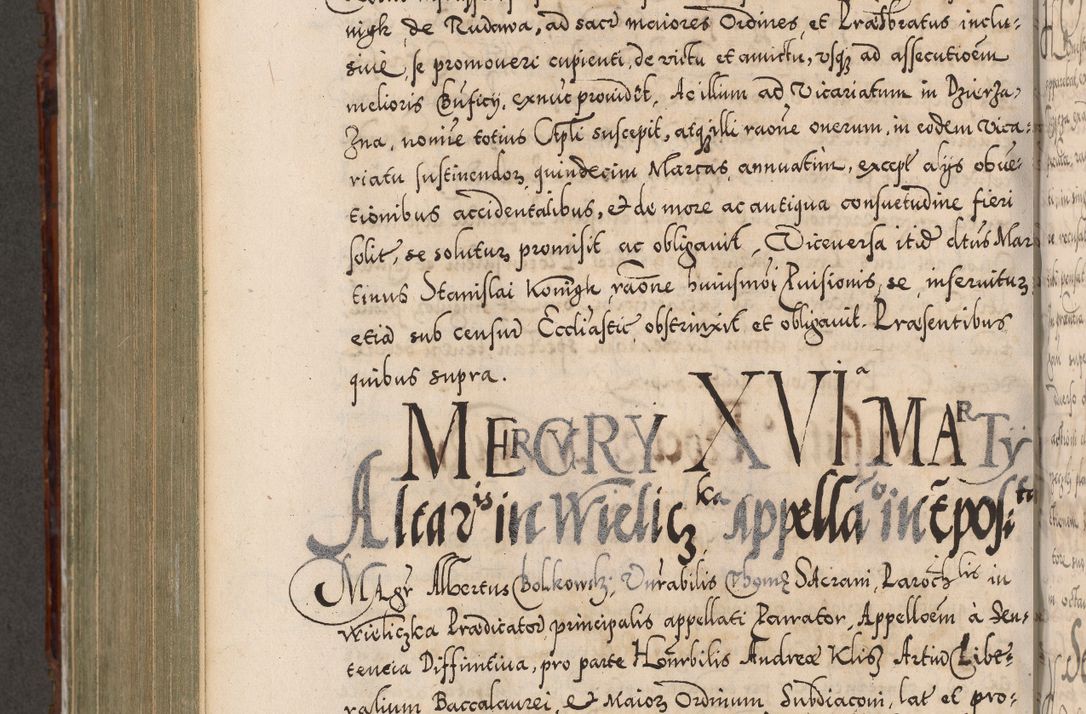 nigk, de Rudawa, ad sacr maiores Ordines, et Præsbratus inclu-
siue, se promoueri cupienti, de victu et amictu, vsqꝫ ad assecutioēm
melioris Bnficy, exnūc prouidit, Ac illum ad Vicariatum in Dzierża-
zna, nomīe totius Cptli suscepit, atqꝫ illi raōne onerum, in eodem Vica-
riatu sustinendorꝫ, quindecim Marcas, annuatim, except alijs obue-
tionibus accidentalibus, et de more ac antiqua consuetudine fieri
solit, se soluturꝫ promisit ac obligauit, Viceuersa itid dtus Mar
tinus Stanislai Konigk, raōne huiusmōi Puisionis, se, inseruiturꝫ
etia sub censur Eccliastic obstrinxit et obligauit. Præsentibus
quibus supra.
MERCVRY XVIa MARTij
Altaris in Wieliczka appellāo in Cpositi
Magr Albertus Bolkowski, Vnrabilis Thomę Sacrani, Parochlis in
Wieliczka Prædicator principalis appellati Pcurator, Appelloēm à Sen-
tencia Diffinitiua, pro parte Honrbilis Andreæ Klisz Artiū Libe-
ralium Baccalaurei, et Maiorꝫ Ordinum Subdiaconi, lat et pro-